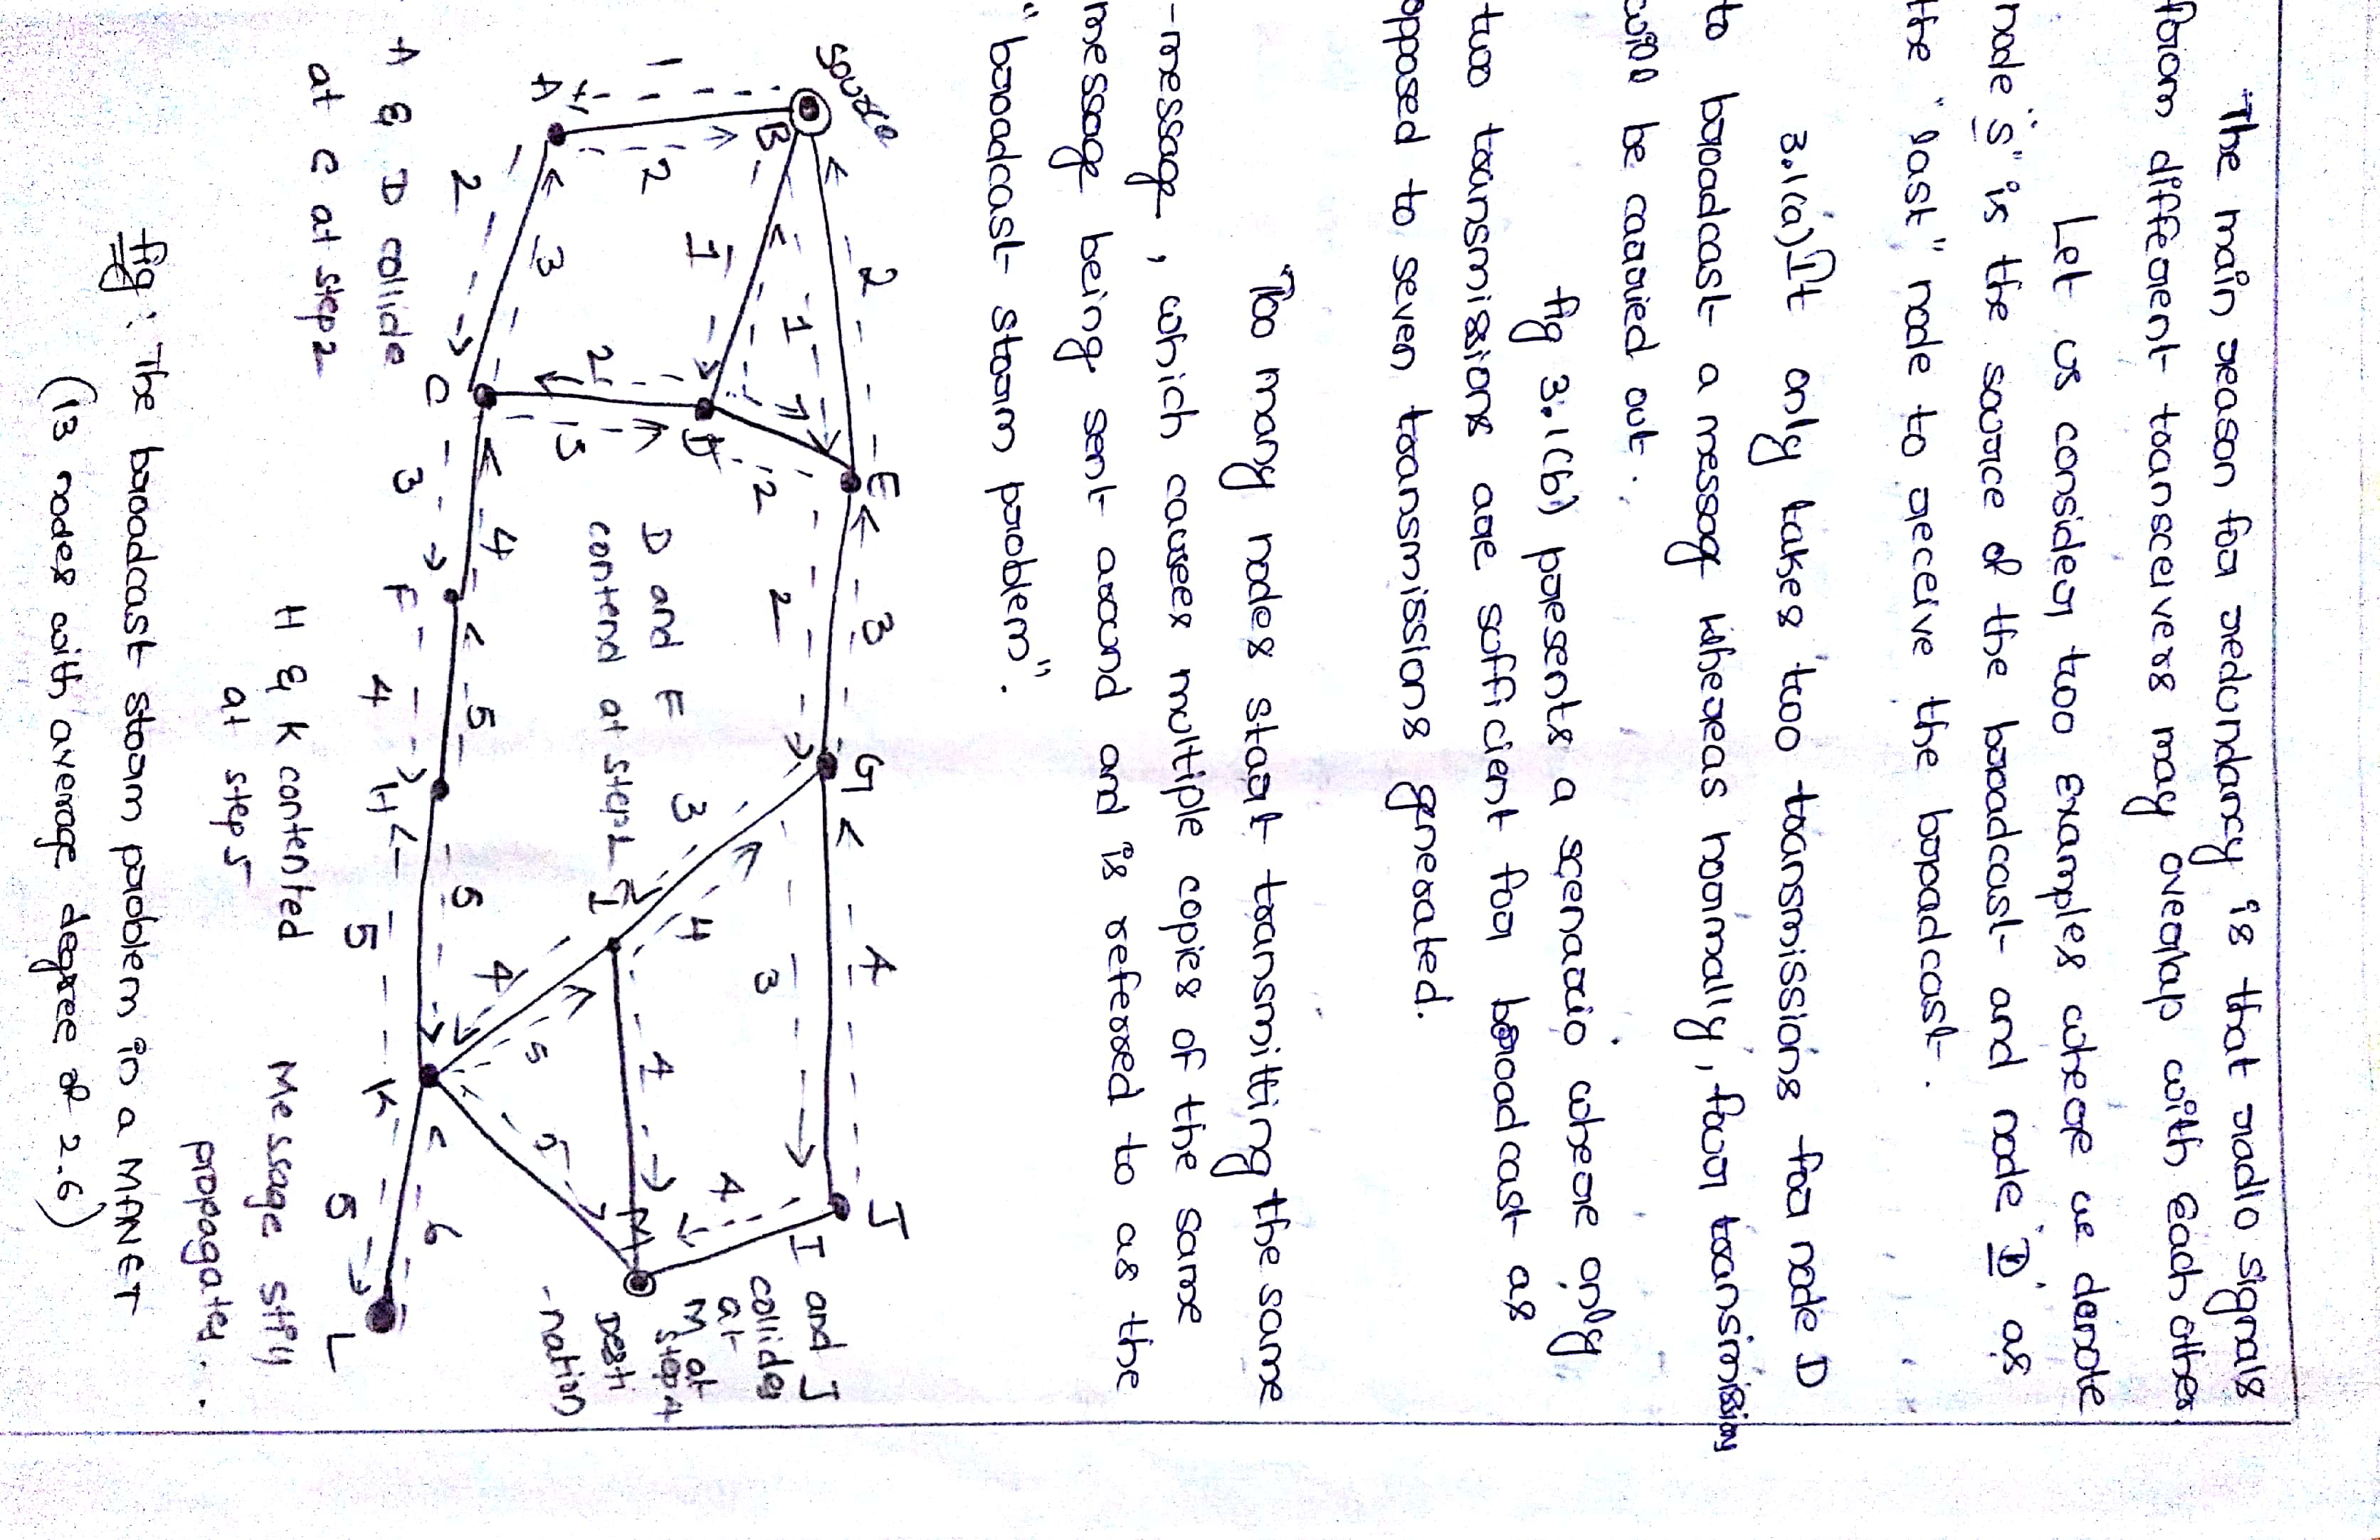 The main reason for redundancy is that radio signals
from different transceivers may overlap with each other.
Let us consider two examples where we denote
node "S" is the source of the broadcast and node "D" as
the "last" node to receive the bopadcast.
3.1(a) It only takes two transmissions for node D
to broadcast a messag whereas normally, four transmission
will be carried out.
fig 3.1(b) presents a scenario where only
two transmissions are sufficient for broadcast as
opposed to seven transmissions generated.
Too many nodes start transmitting the same
-message, which causes multiple copies of the same
message being sent around and is refered to as the
"broadcast storm problem".
Source
B
A
C
D
E
F
G
H
I
J
K
L
M
1
2
2
3
1
1
2
2
3
2
3
4
2
3
4
5
3
4
3
4
5
5
4
5
4
4
5
5
6
A & D collide
at C at step2
D and F
contend at step2
H & K contented
at step 5
I and J
collides
at
M at
step4
Desti
-nation
Message still
propagates.
fig: The broadcast storm problem in a MANET
(13 nodes with average degree of 2.6)